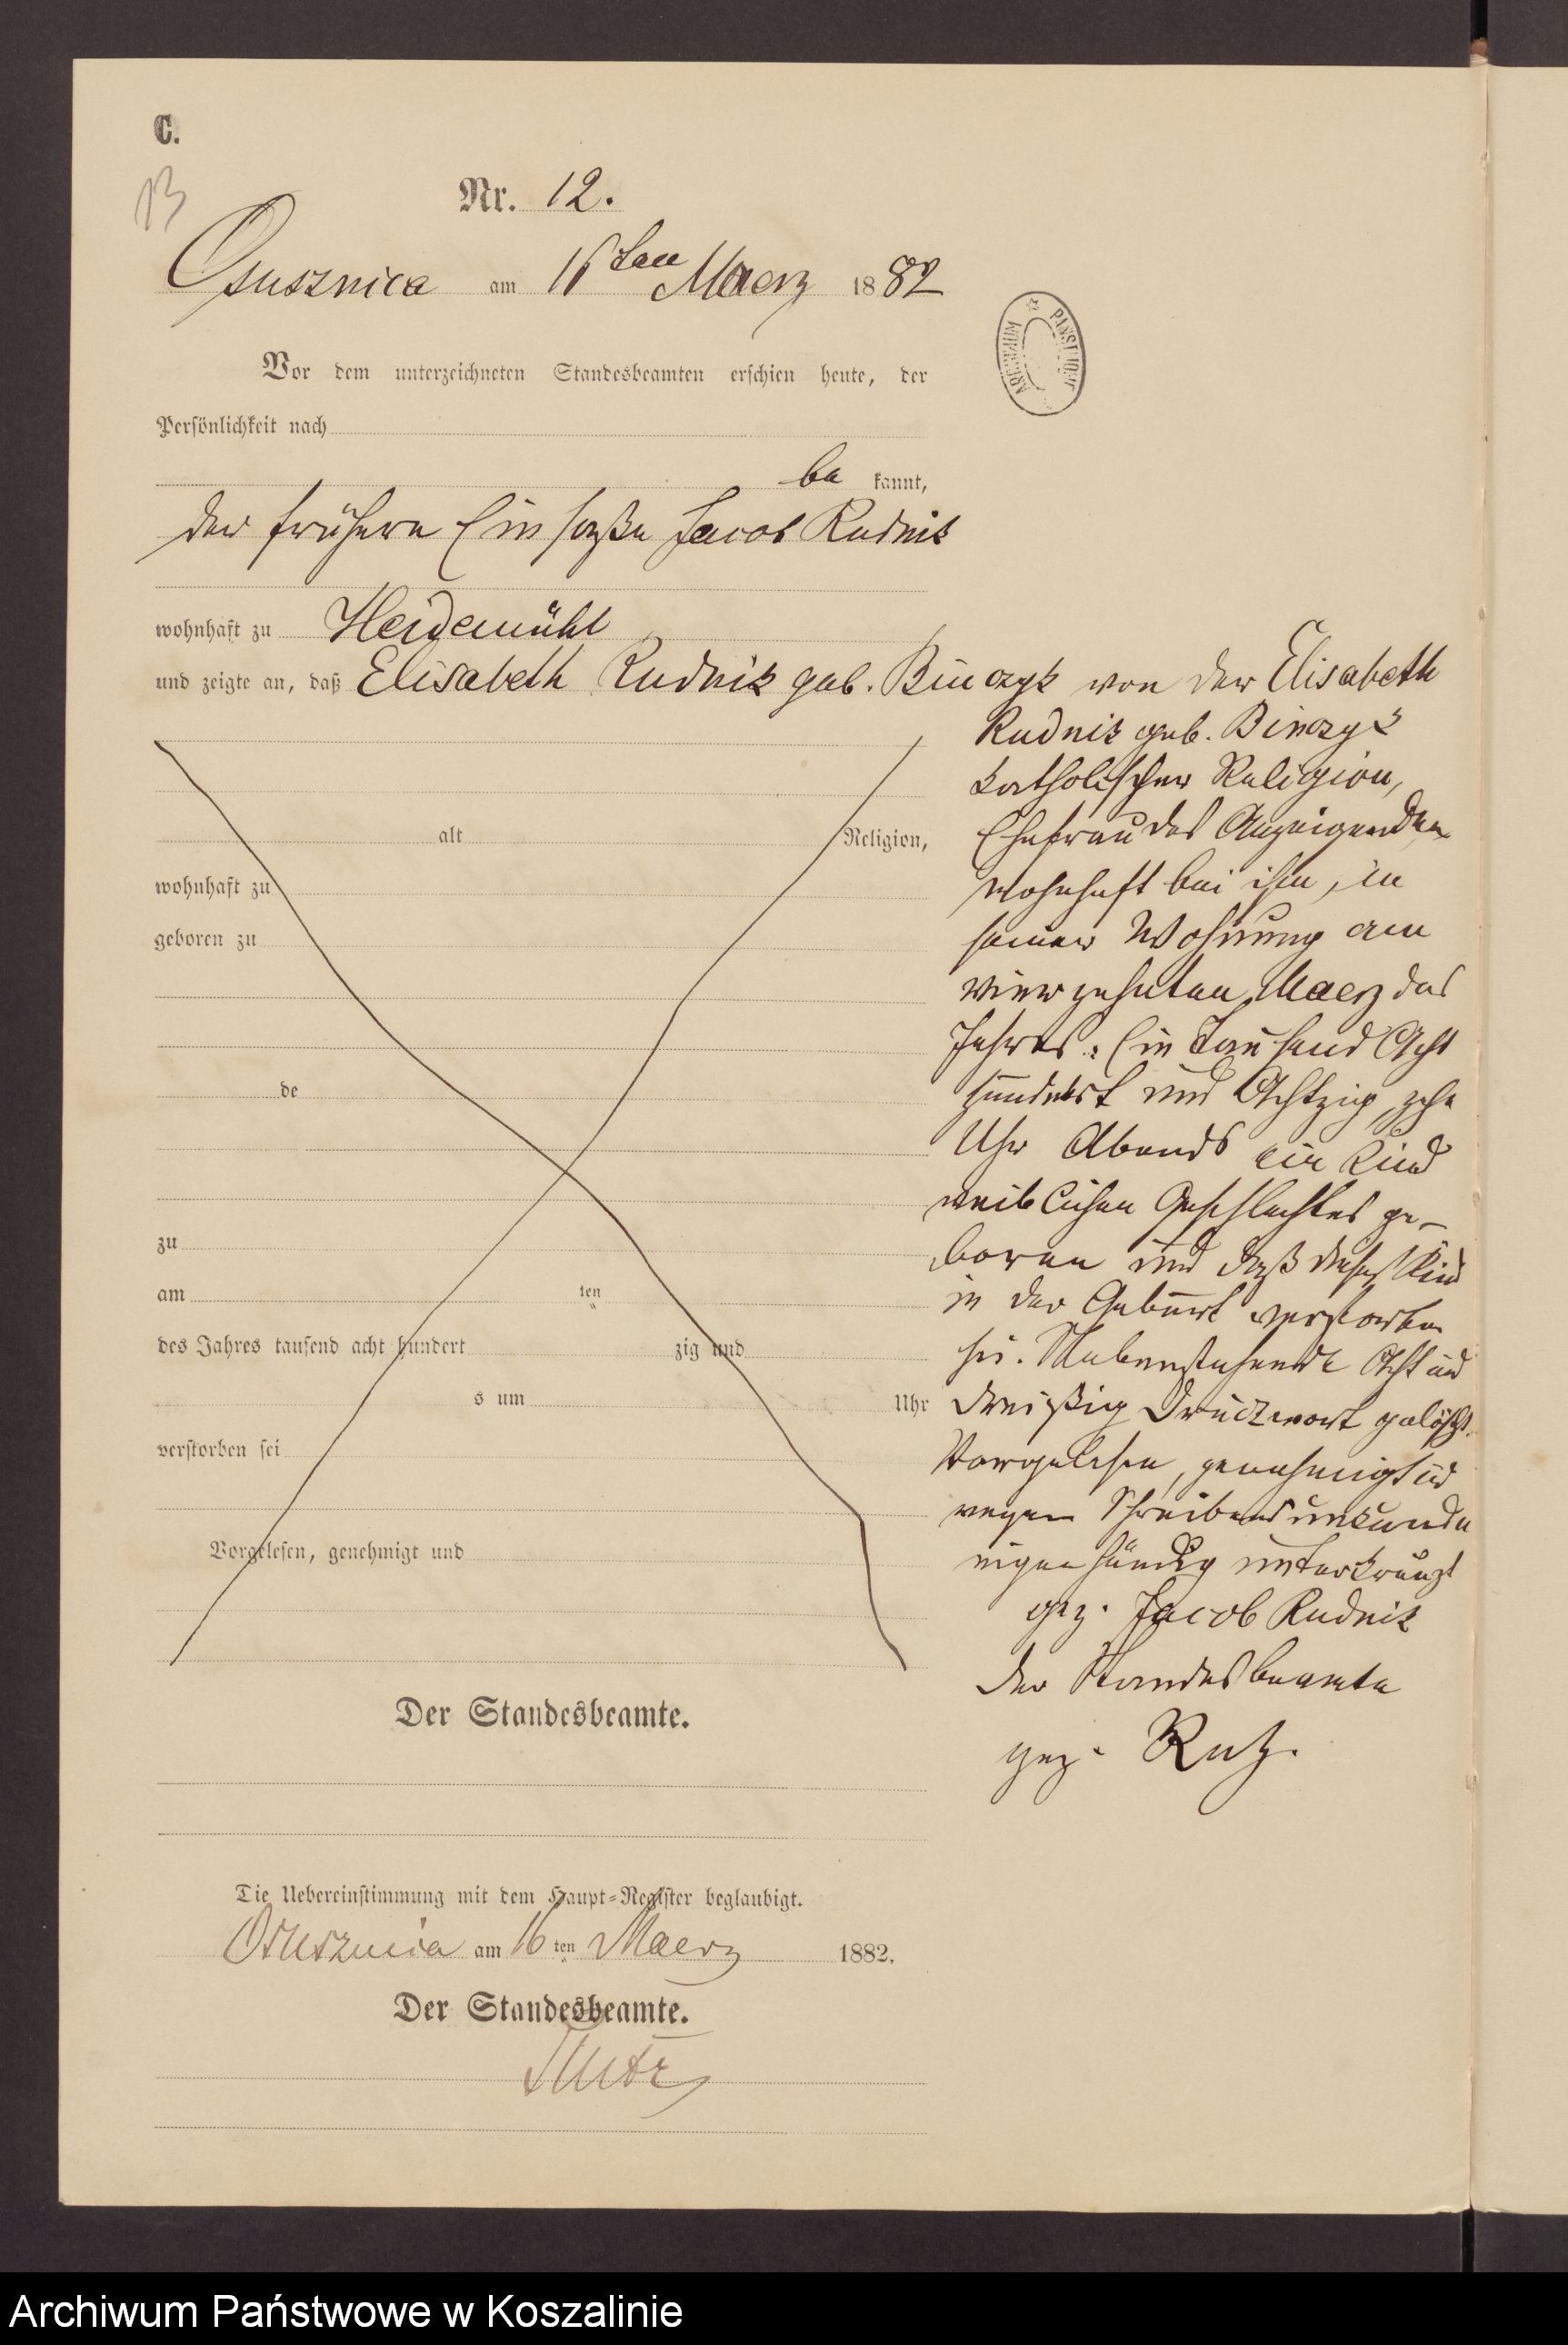 C.
13
Nr. 12.
Osusznica am 16ten Maerz 1882
Vor dem unterzeichneten Standesbeamten erschien heute, der
Persönlichkeit nach
be kannt,
der frühere Einsaße Jacob Rudnik
wohnhaft zu Heidemühl
und zeigte an, daß Elisabeth Rudnik geb. Binczyk von der Elisabeth
Rudnik geb. Binczyk
katholischer Religion,
Ehefrau des Anzeigenden
wohnhaft bei ihm, in
seiner Wohnung am
vierzehnten Maerz des
Jahres Ein Tausend Acht
hundert und Achtzig zehn
Uhr Abends ein Kind
weiblichen Geschlechtes ge-
boren und daß dieses Kind
in der Geburt verstorben
sei. Nebenstehende Acht und
dreißig Druckwort gelöscht.
Vorgelesen, genehmigt und
wegen Schreibensunkunde
eigenhändig unterkreuzt
gez. Jacob Rudnik
der Standesbeamte
gez.
alt Religion,
wohnhaft zu
geboren zu
de
zu
am ten
des Jahres tausend acht hundert zig und
s um Uhr
verstorben sei
Vorgelesen, genehmigt und
Der Standesbeamte.
Die Uebereinstimmung mit dem Haupt-Register beglaubigt.
Osusznica am 16 ten Maerz 1882.
Der Standesbeamte.
ARCHIWUM PAŃSTWOWE
Archiwum Państwowe w Koszalinie